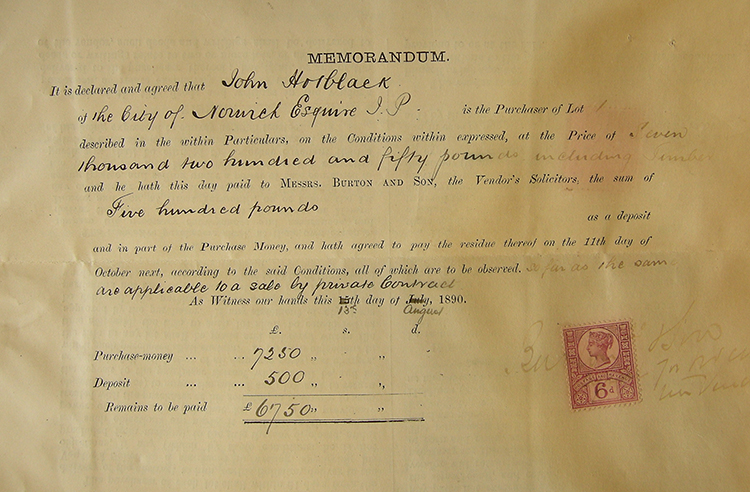 MEMORANDUM.
It is declared and agreed that John Hotblack
of the City of Norwich Esquire J.P. is the Purchaser of Lot 1
described in the within Particulars, on the Conditions within expressed, at the Price of Seven
thousand two hundred and fifty pounds including timber
and he hath this day paid to MESSRS. BURTON AND SON, the Vendor's Solicitors, the sum of
Five hundred pounds
as a deposit
and in part of the Purchase Money, and hath agreed to pay the residue thereof on the 11th day of
October next, according to the said Conditions, all of which are to be observed. So far as the same
are applicable to a sale by private Contract
As Witness our hands this 15th day of July, 1890.
13th August
£. s. d.
Purchase-money ... ... 7250 „ „
Deposit ... ... 500 „ „
Remains to be paid £ 6750 „ „
6d